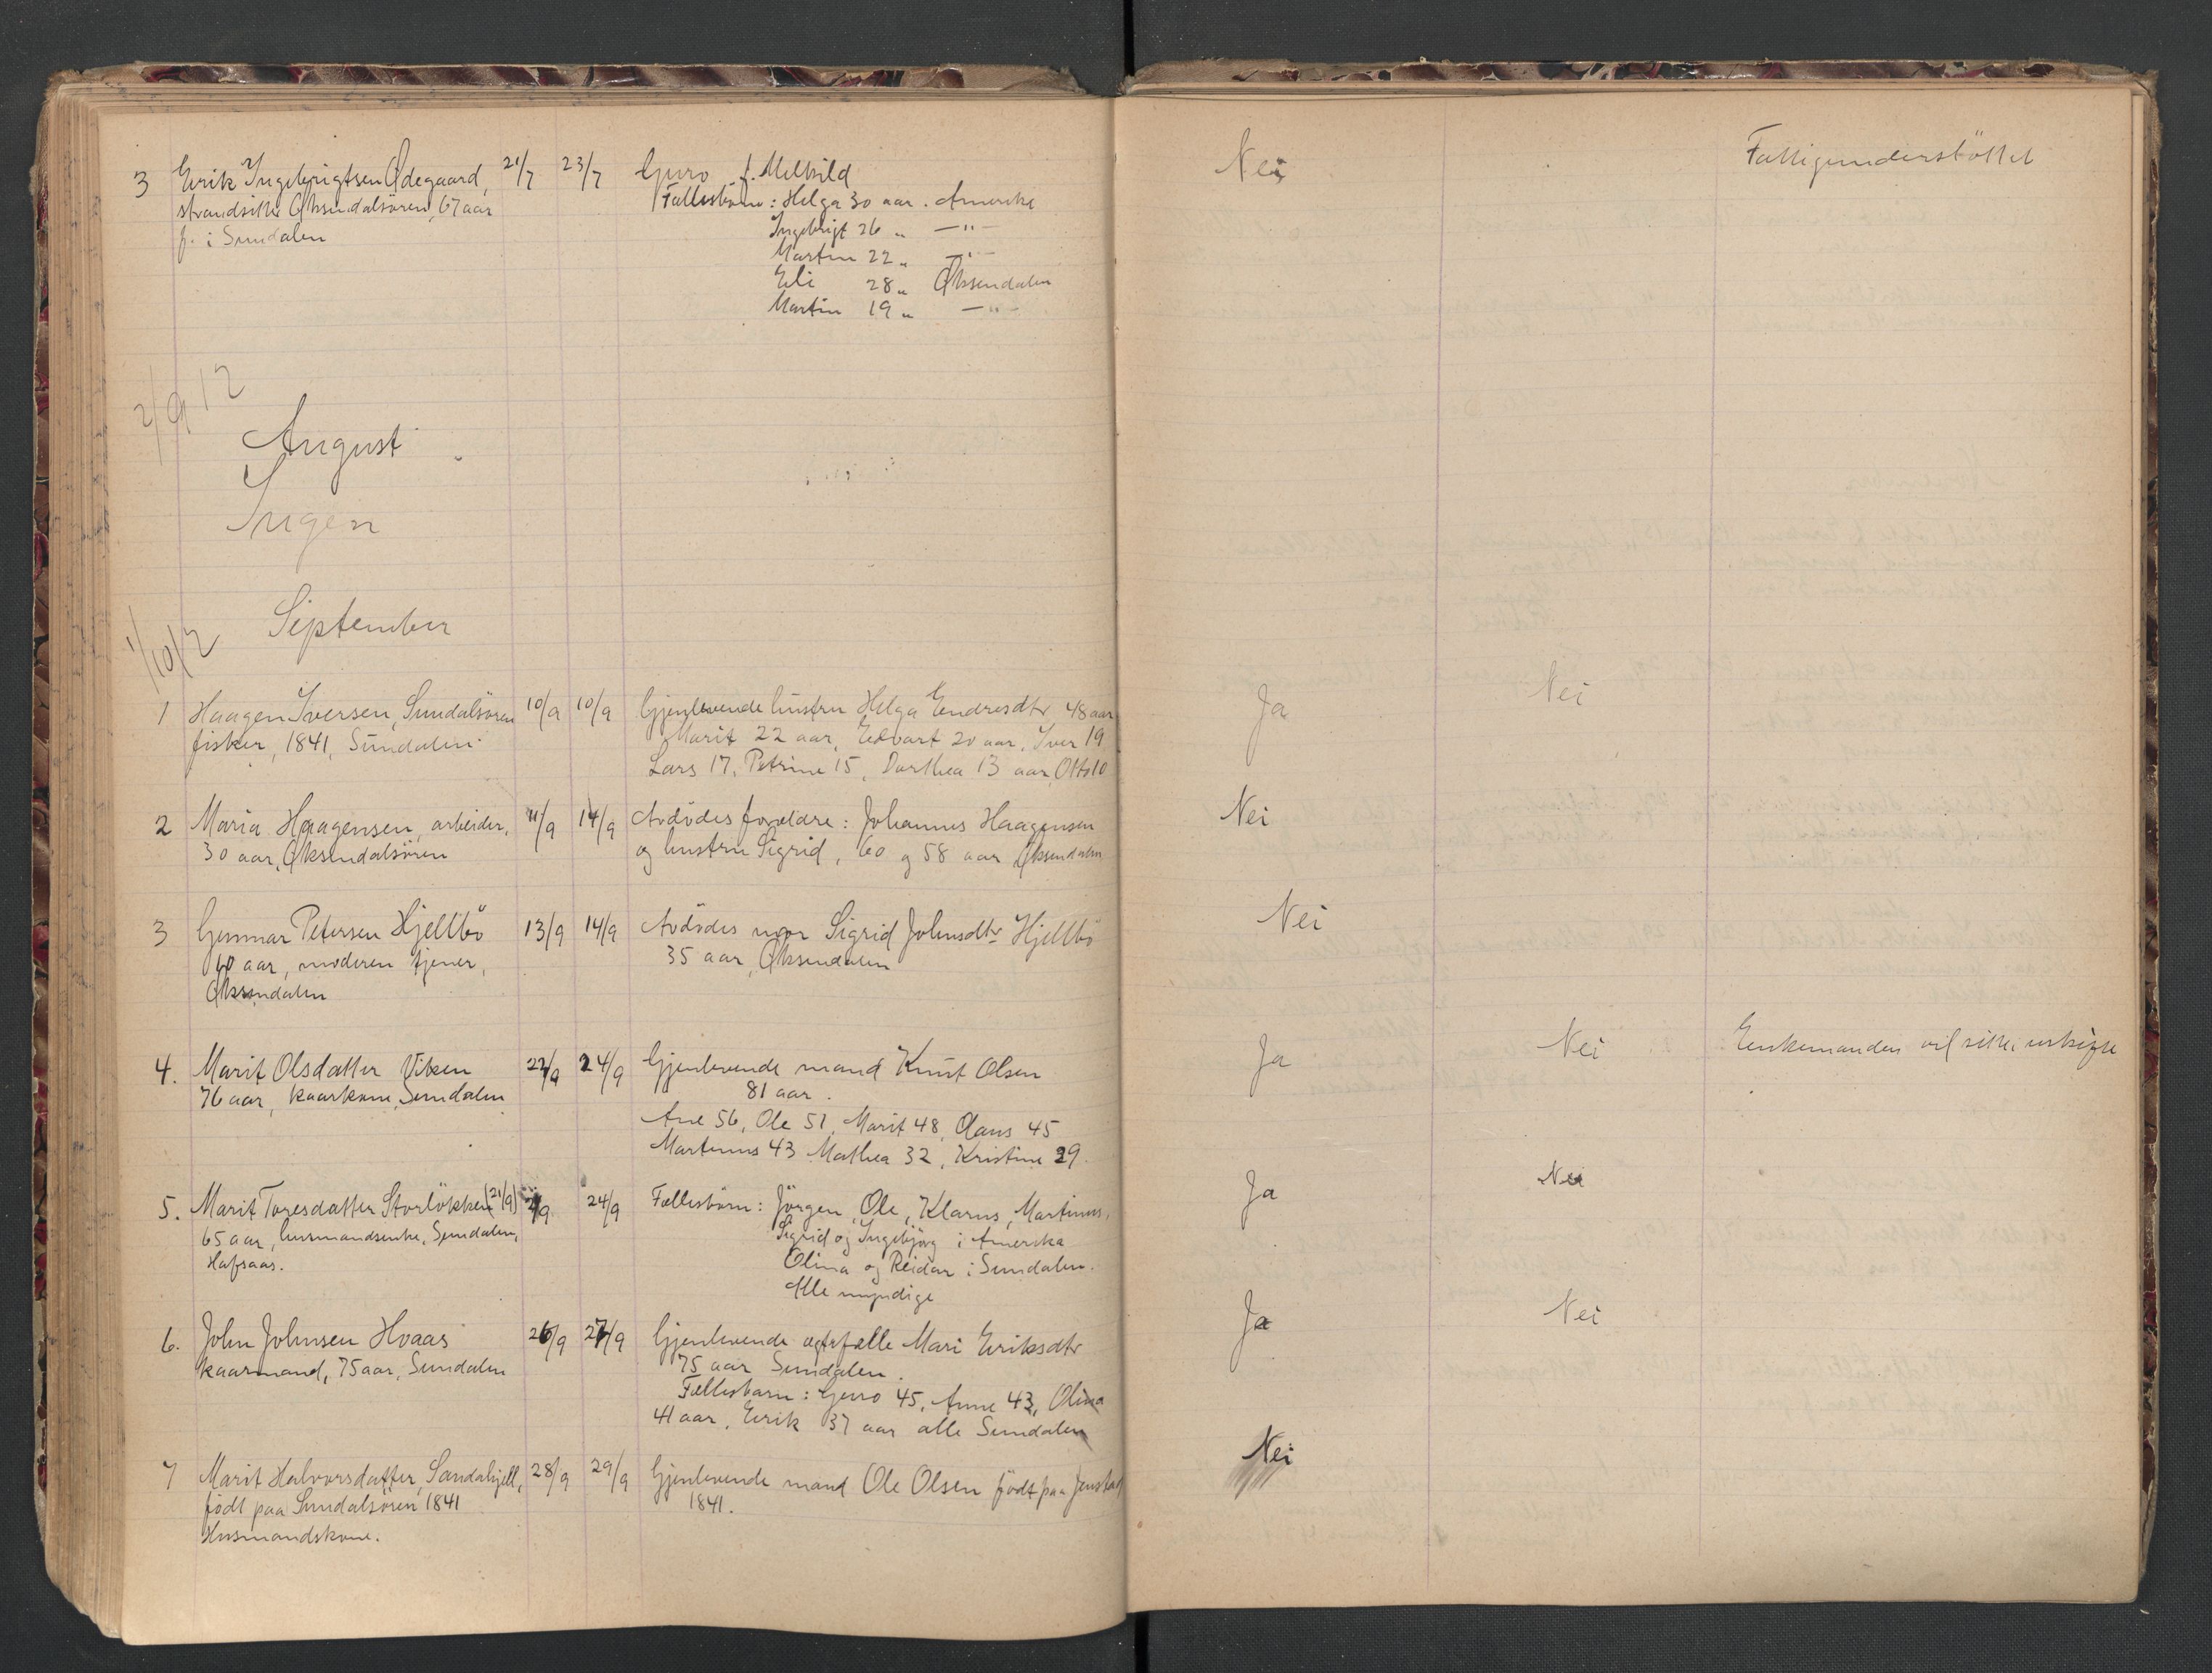 3 Erik Ingebrigtsen Ødegaard, 21/7 23/7 Guro f. Melkild Nei Fattigunderstöttet
strandsitter Øksendalsören, 67 aar Fællesbörn: Helga 30 aar. Amerika
f. i Sundalen Ingebrigt 26 " —"—
Martin 22 " —"—
Eli 28 " Øksendalen
Martin 19 " —"—
2/9 12
August
Ingen
1/10 12 September
1 Haagen Iversen, Sundalsören 10/9 10/9 Gjenlevende hustru Helga Endresdtr 48 aar Ja Nei
fisker, 1841, Sundalen Marit 22 aar, Edvart 20 aar, Iver 19
Lars 17, Petrine 15, Dorthea 13 aar, Otto 10
2 Maria Haagensen, arbeider, 11/9 14/9 Avdödes forældre: Johannes Haagensen Nei
30 aar, Øksendalsören og hustru Sigrid, 60 og 58 aar Øksendalen
3 Gunnar Petersen Hjellbö 13/9 14/9 Avdödes mor Sigrid Johnsdtr Hjellbö Nei
10 aar, moderen tjener, 35 aar, Øksendalen
Øksendalen
4. Marit Olsdatter Viken 22/9 24/9 Gjenlevende mand Knut Olsen Ja Nei Enkemanden vil sitte i uskifte
76 aar, kaarkone, Sundalen 81 aar.
Ane 56, Ole 51, Marit 48, Olaus 45
Martinus 43 Mathea 32, Kristine 29.
5. Marit Toresdatter Storlökken (21/9) 21/9 24/9 Fællesbörn: Jörgen, Ole, Klarus, Martinus, Ja Nei
65 aar, husmandsenke, Sundalen, Sigrid og Ingebjörg i Amerika
Hafsaas. Olina og Reidar i Sundalen.
Alle myndige
6. John Johnsen Hoaas 26/9 27/9 Gjenlevende egtefælle Mari Eriksdtr Ja Nei
kaarmand, 75 aar, Sundalen 75 aar Sundalen.
Fællesbarn: Guro 45, Anne 43, Olina
41 aar, Erik 37 aar alle Sundalen
7 Marit Halvorsdatter, Sandahjell, 28/9 29/9 Gjenlevende mand Ole Olsen födt paa Jenstad Nei
födt paa Sundalsören 1841 1841.
Husmandskone.